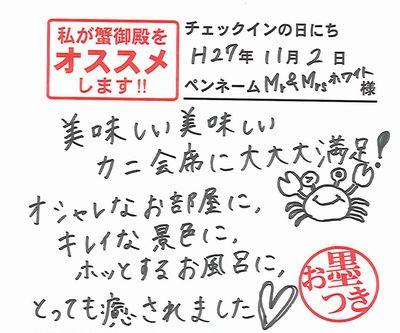 私が蟹御殿を
オススメ
します!!
チェックインの日にち
H27年 11月 2日
ペンネーム Mr&Mrsホワイト様
美味しい美味しい
カニ会席に大大大満足!
オシャレなお部屋に,
キレイな景色に,
ホッとするお風呂に,
とっても癒されました♡
お墨つき